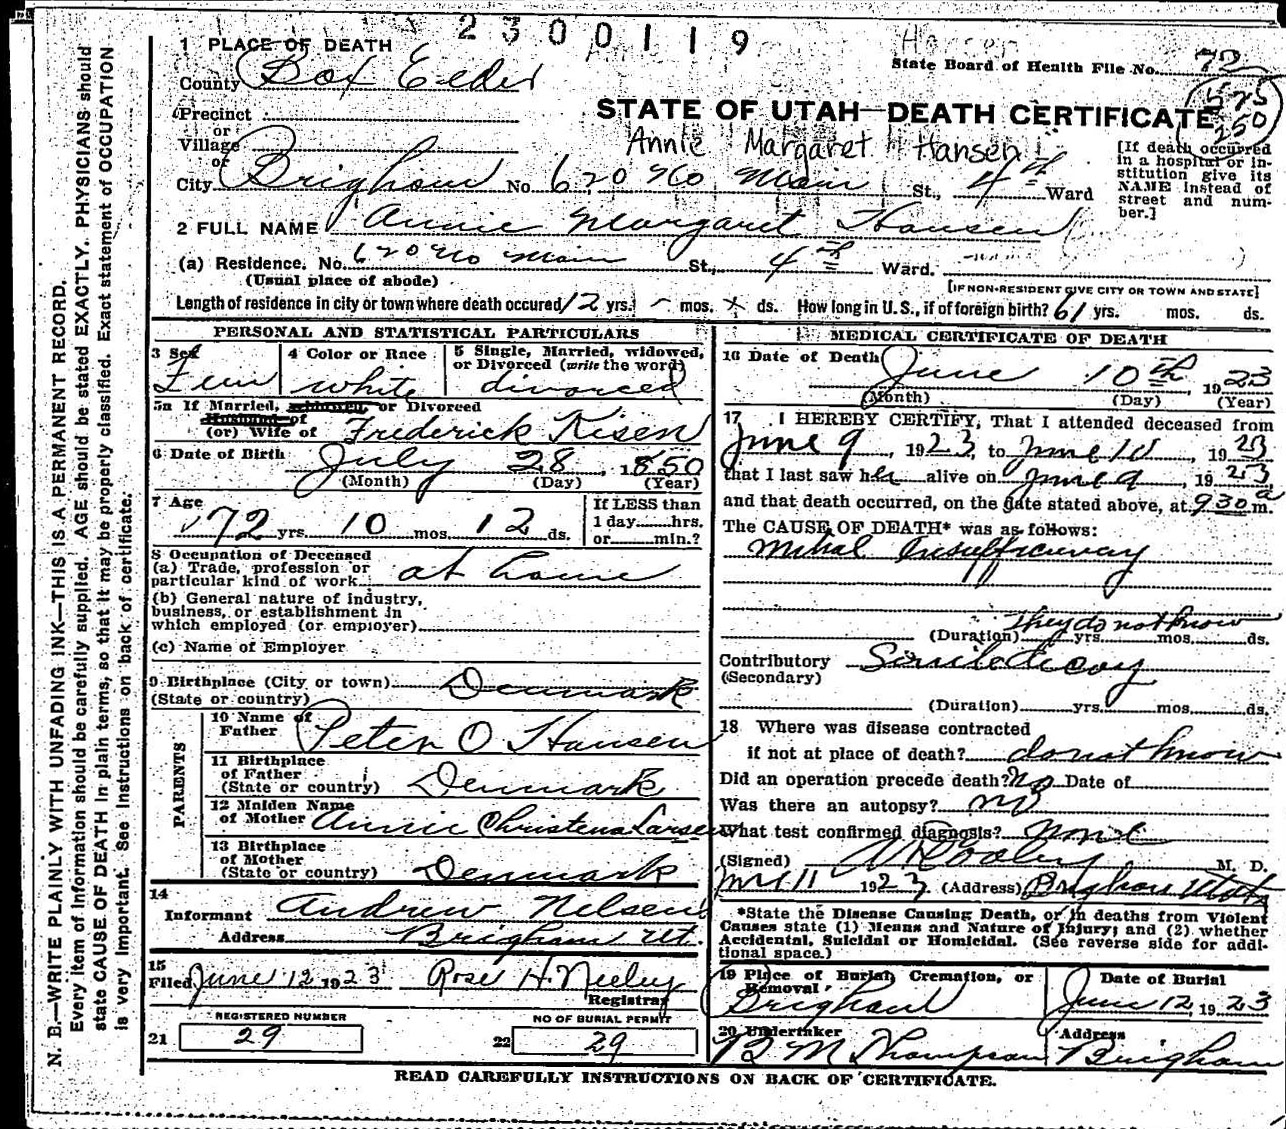 2300119
Hansen
1 PLACE OF DEATH
State Board of Health File No. 72
County Box Elder
575
250
Precinct
STATE OF UTAH—DEATH CERTIFICATE
or
Village
or
Annie Margaret Hansen
City Brigham No 620 No Main St., 4th Ward
[If death occurred in a hospital or institution give its NAME instead of street and number.]
2 FULL NAME Annie Margaret Hansen
(a) Residence. No. 620 No Main St., 4th Ward.
(Usual place of abode)
[IF NON-RESIDENT GIVE CITY OR TOWN AND STATE]
Length of residence in city or town where death occured 12 yrs. - mos. x ds. How long in U.S., if of foreign birth? 61 yrs. mos. ds.
PERSONAL AND STATISTICAL PARTICULARS
3 Sex 4 Color or Race 5 Single, Married, widowed,
or Divorced (write the word)
Fem white divorced
5a If Married, widowed, or Divorced
Husband of
(or) Wife of Frederick Kisen
6 Date of Birth July 28, 1850
(Month) (Day) (Year)
7 Age
72 yrs. 10 mos. 12 ds.
If LESS than
1 day......hrs.
or......min.?
8 Occupation of Deceased
(a) Trade, profession or
particular kind of work at home
(b) General nature of industry,
business, or establishment in
which employed (or employer)
(c) Name of Employer
9 Birthplace (City or town) Denmark
(State or country)
PARENTS
10 Name of
Father Peter O Hansen
11 Birthplace
of Father
(State or country) Denmark
12 Maiden Name
of Mother Annie Christena Larsen
13 Birthplace
of Mother
(State or country) Denmark
14
Informant Andrew Nelsen
Address Brigham Ut.
15
Filed June 12 1923 Rose H. Neeley
Registrar
REGISTERED NUMBER NO OF BURIAL PERMIT
21 29 22 29
MEDICAL CERTIFICATE OF DEATH
16 Date of Death June 10th, 1923
(Month) (Day) (Year)
17 I HEREBY CERTIFY, That I attended deceased from
June 9, 1923, to June 10, 1923
that I last saw her alive on June 9, 1923
and that death occurred, on the date stated above, at 9 30 a m.
The CAUSE OF DEATH* was as follows:
Mitral Insufficiency
they do not know
(Duration) yrs. mos. ds.
Contributory Senile decay
(Secondary)
(Duration) yrs. mos. ds.
18 Where was disease contracted
if not at place of death? do not know
Did an operation precede death? No Date of
Was there an autopsy? no
What test confirmed diagnosis? none
(Signed) M. D.
11 1923. (Address) Brigham Utah
*State the Disease Causing Death, or in deaths from Violent
Causes state (1) Means and Nature of Injury; and (2) whether
Accidental, Suicidal or Homicidal. (See reverse side for addi-
tional space.)
19 Place of Burial, Cremation, or Date of Burial
Removal
Brigham June 12 1923
20 Undertaker Address
B M Thompson Brigham
READ CAREFULLY INSTRUCTIONS ON BACK OF CERTIFICATE.
N. B.—WRITE PLAINLY WITH UNFADING INK—THIS IS A PERMANENT RECORD.
Every item of information should be carefully supplied. AGE should be stated EXACTLY. PHYSICIANS should
state CAUSE OF DEATH in plain terms, so that it may be properly classified. Exact statement of OCCUPATION
is very important. See instructions on back of certificate.